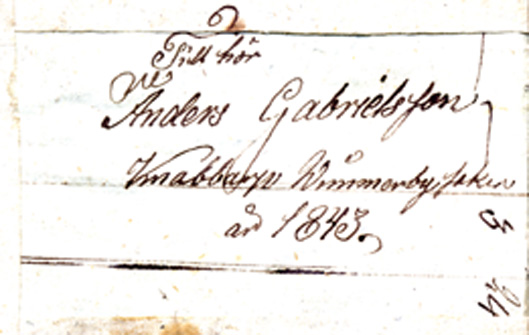 2
Till hör
Anders Gabrielsson
Knabbarp Wimmerby soken
år 1843.